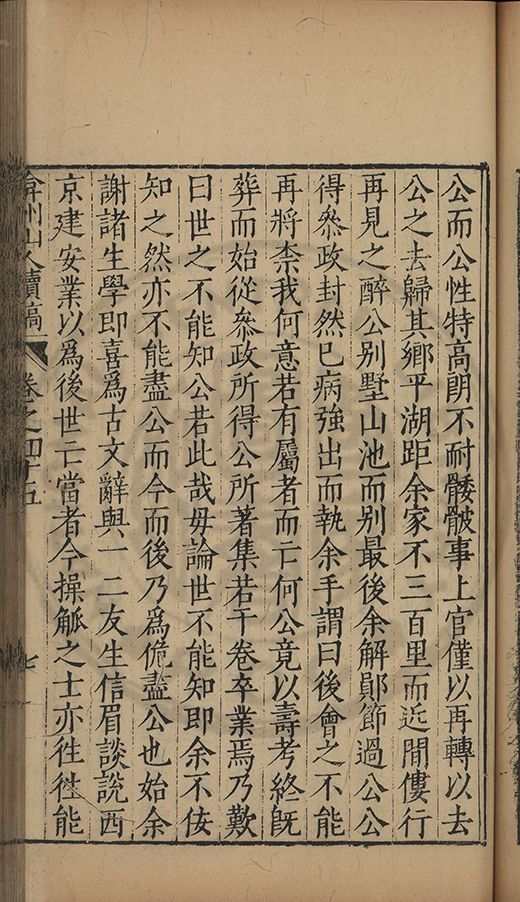 公而公性特高朗不耐骯髒事上官僅以再轉以去
公之去歸其鄉平湖距余家不三百里而近間僂行
再見之醉公別墅山池而別最後余解鄖節過公公
得叅政封然已病強出而執余手謂曰後會之不能
再將柰我何意若有屬者而亡何公竟以壽考終旣
葬而始從叅政所得公所著集若干卷卒業焉乃歎
曰世之不能知公若此哉毋論世不能知卽余不佞
知之然亦不能盡公而今而後乃爲能盡公也始余
謝諸生學卽喜爲古文辭與一二友生信眉談說西
京建安業以爲後世亡當者今操觚之士亦徃徃能
弇州山人續稿 卷之四十五 七